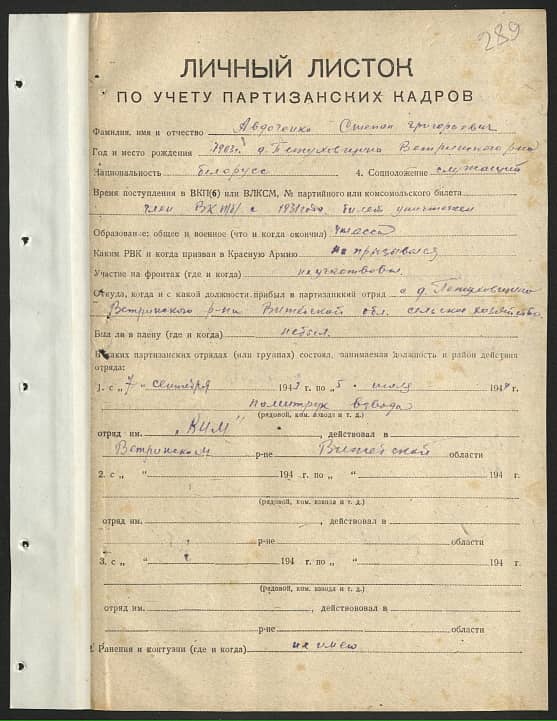 289
ЛИЧНЫЙ ЛИСТОК
ПО УЧЕТУ ПАРТИЗАНСКИХ КАДРОВ
Фамилия, имя и отчество Авдоченко Степан Григорьевич
Год и место рождения 1903г. д. Петуховщина Ветринского р-на
Национальность белорусс 4. Соцположение служащий
Время поступления в ВКП(б) или ВЛКСМ, № партийного или комсомольского билета
член ВКП/б/ с 1931 года билет уничтожен
Образование: общее и военное (что и когда окончил) 4 класса
Каким РВК и когда призван в Красную Армию не призывался
Участие на фронтах (где и когда) не участвовал
Откуда, когда и с какой должности прибыл в партизанский отряд с д. Петуховщина
Ветринского р-на Витебской обл. сельское хозяйство.
Был ли в плену (где и когда) небыл.
В каких партизанских отрядах (или группах) состоял, занимаемая должность и район действия
отряда:
1. с „7 „ сентября 1943 г. по „5 „ июля 1944 г.
политрук взвода
(рядовой, ком. взвода и т. д.)
отряд им. „КИМ" , действовал в
Ветринском р-не Витебской области
2. с „ „ 194 г. по „ „ 194 г.
(рядовой, ком. взвода и т. д.)
отряд им. , действовал в
р-не области
3. с „ „ 194 г. по „ „ 194 г.
(рядовой, ком. взвода и т. д.)
отряд им. , действовал в
р-не области
Ранения и контузии (где и когда) не имею